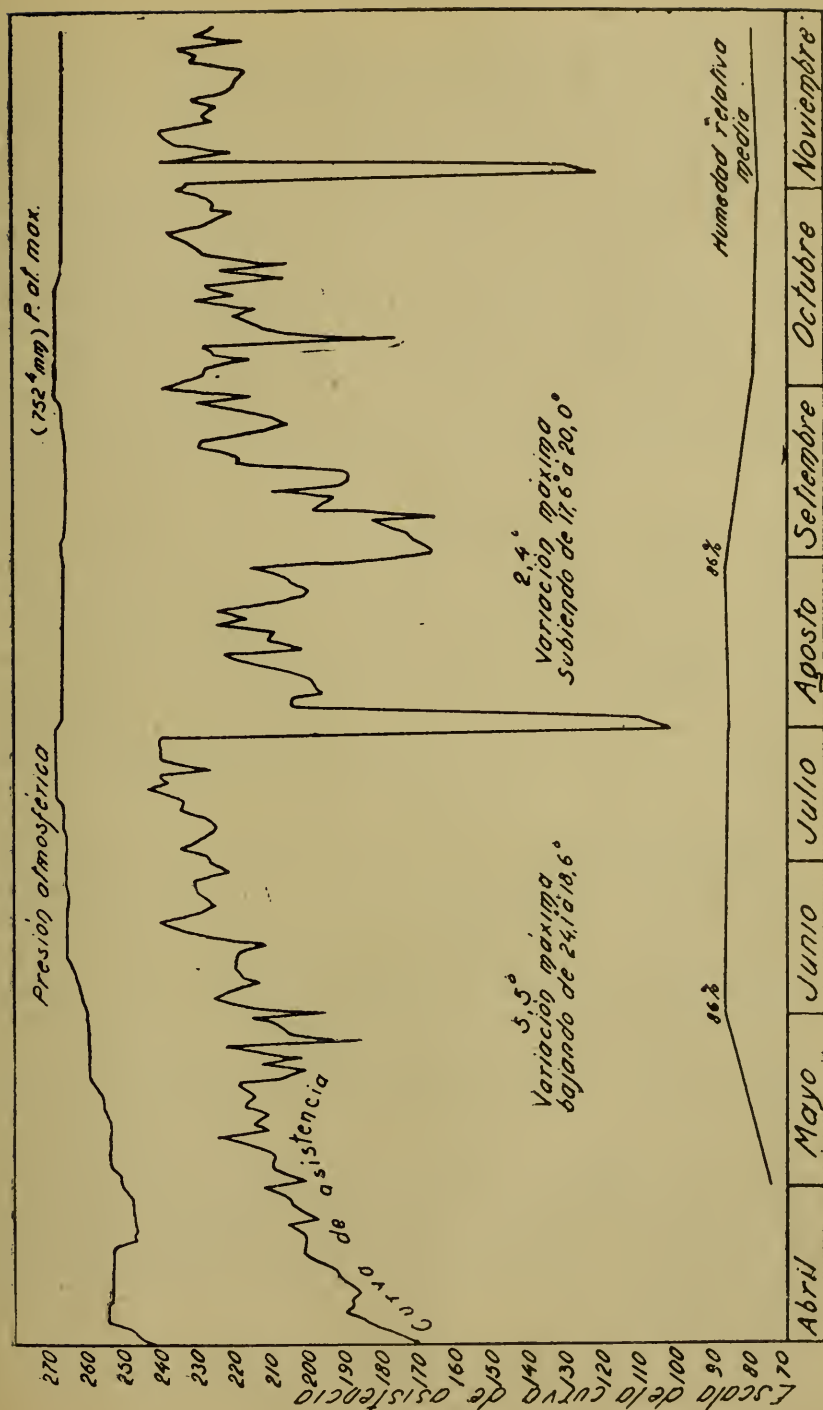 Presión atmosférica
(752⁴ mm) P. at. max.
Curva de asistencia
5,5°
Variación máxima
bajando de 24,1 à 18,6°
2,4°
Variación máxima
subiendo de 17,6° à 20,0°
86%
86%
Humedad relativa
media
Escala de la curva de asistencia
270
260
250
240
230
220
210
200
190
180
170
160
150
140
130
120
110
100
90
80
70
Abril
Mayo
Junio
Julio
Agosto
Setiembre
Octubre
Noviembre